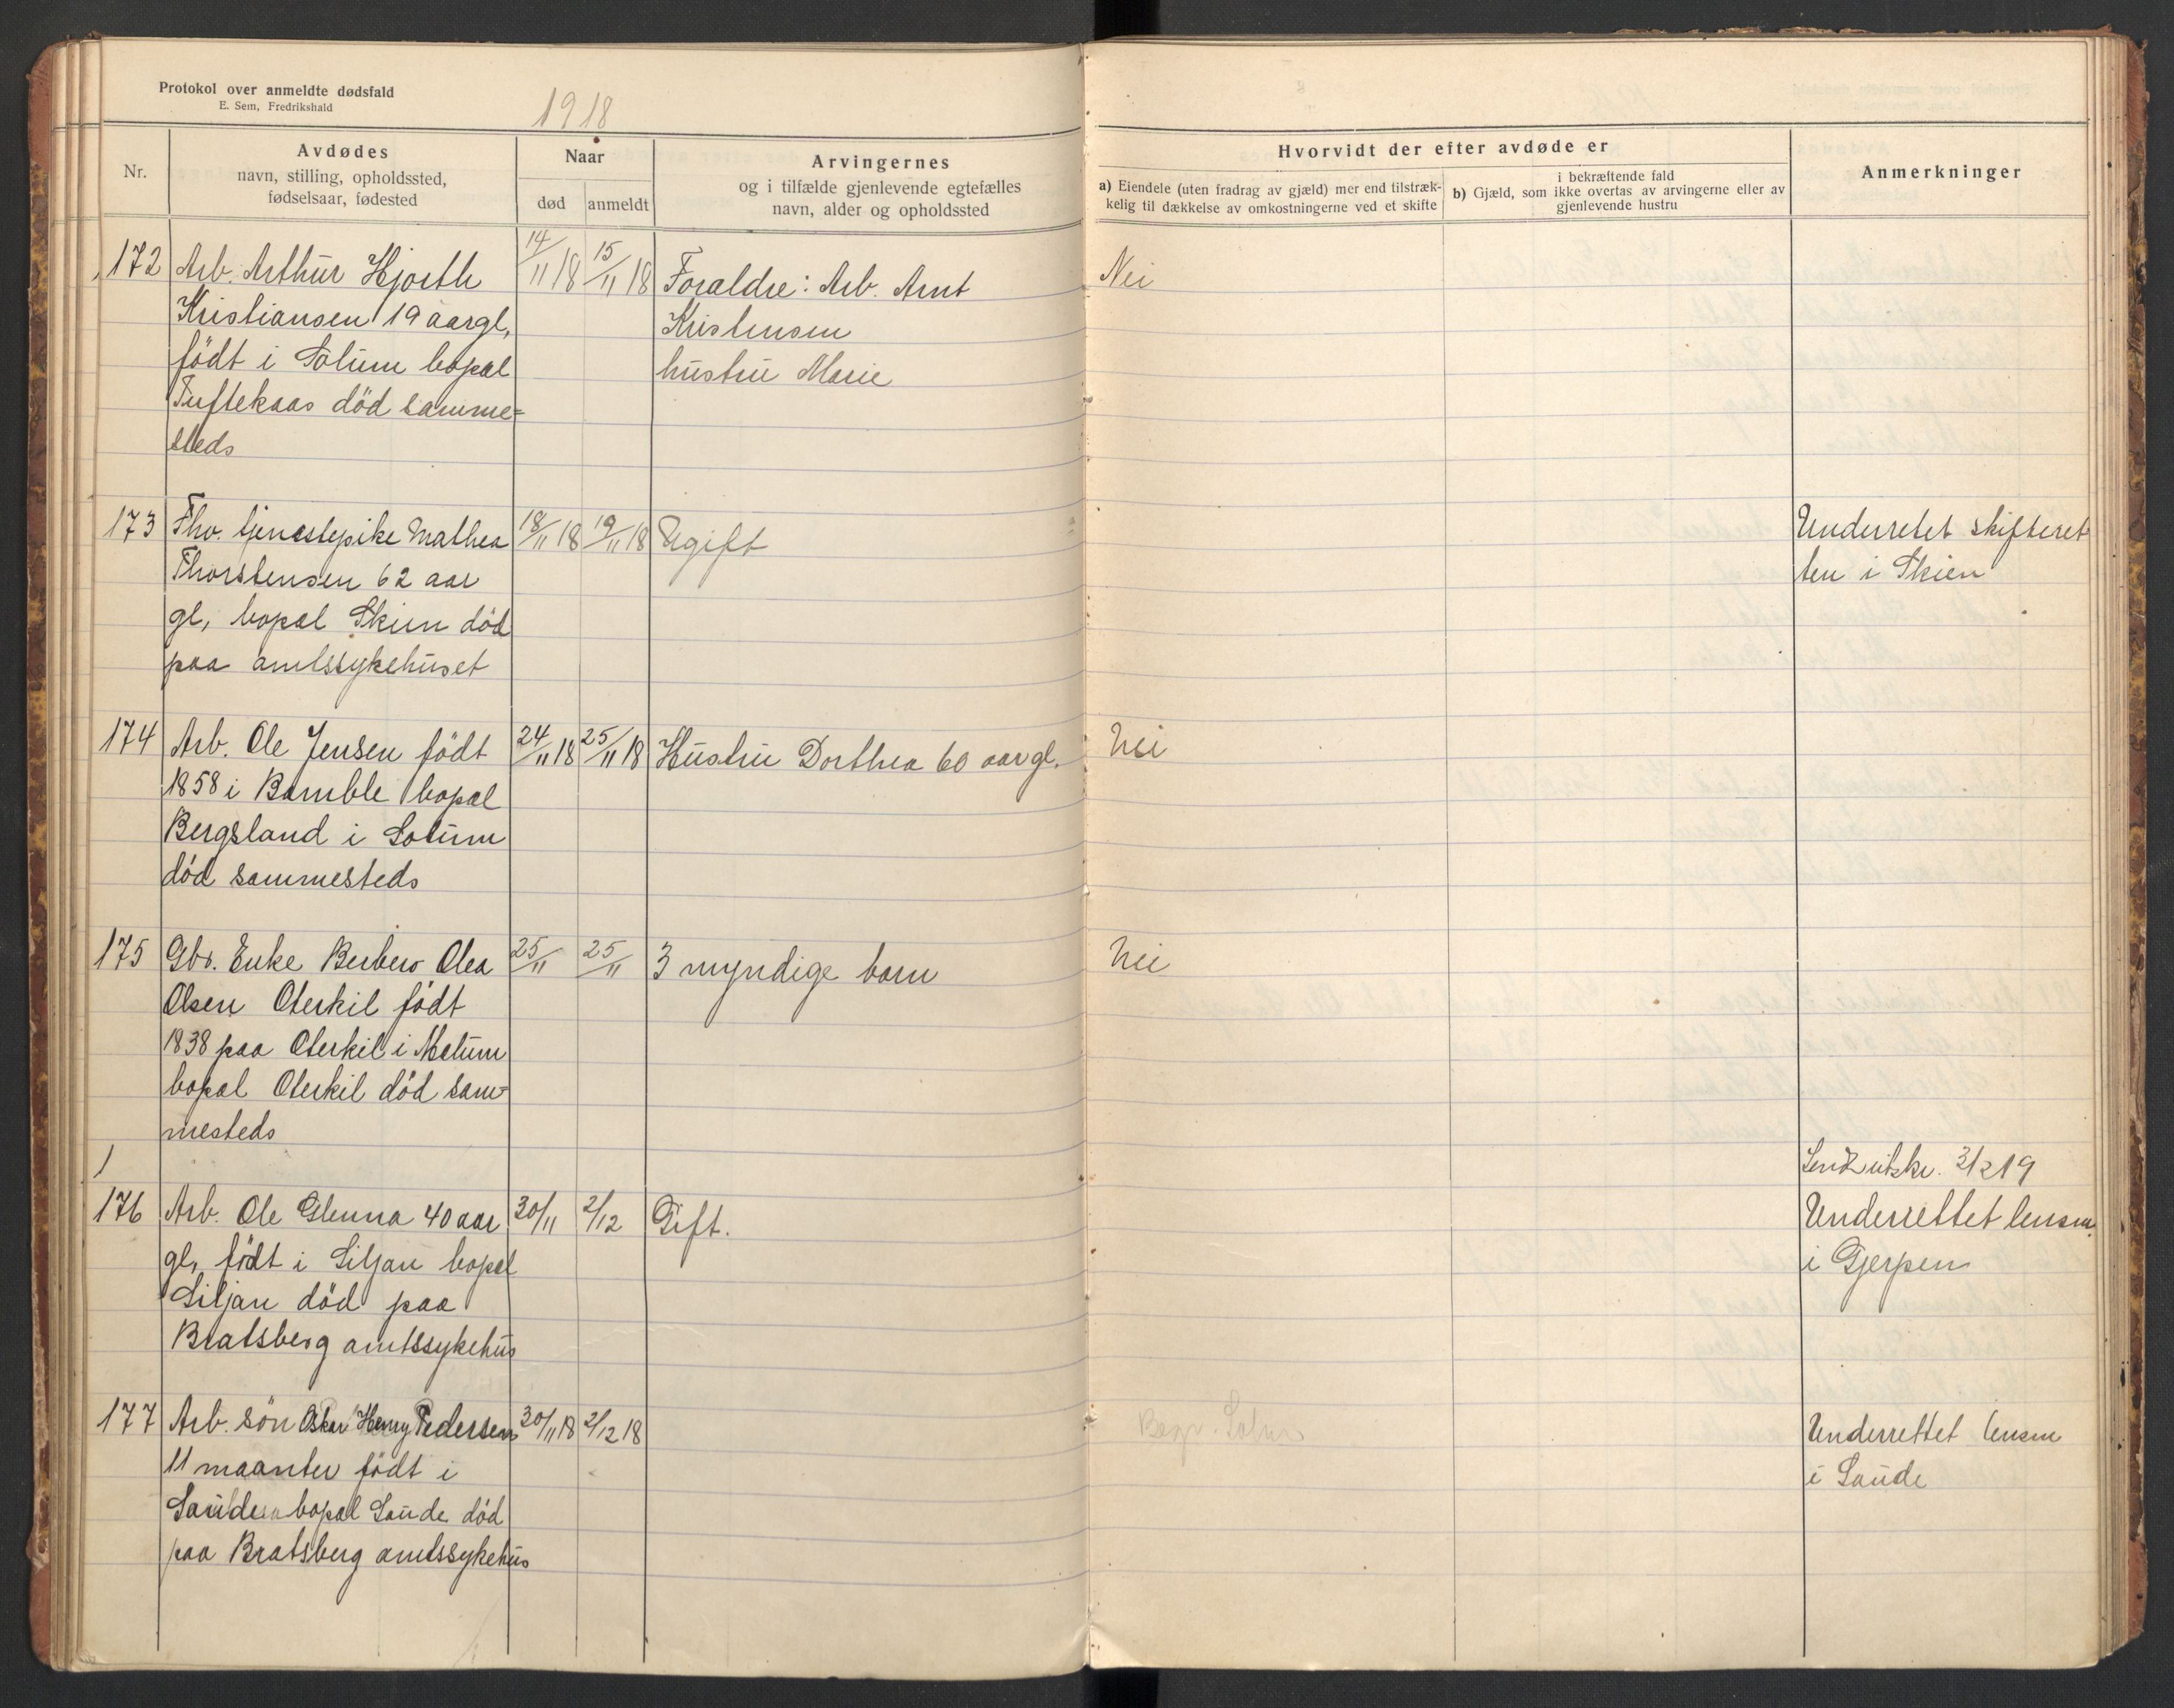 Protokol over anmeldte dødsfald
E. Sem, Fredrikshald
1918
Nr.
Avdødes
navn, stilling, opholdssted,
fødselsaar, fødested
Naar
død
anmeldt
Arvingernes
og i tilfælde gjenlevende egtefælles
navn, alder og opholdssted
Hvorvidt der efter avdøde er
a) Eiendele (uten fradrag av gjæld) mer end tilstræk-
kelig til dækkelse av omkostningerne ved et skifte
i bekræftende fald
b) Gjæld, som ikke overtas av arvingerne eller av
gjenlevende hustru
Anmerkninger
172 Arb. Arthur Hjorth 14/11 18 15/11 18 Foraldre: Arb. Arnt Nei
Kristiansen 19 aargl, Kristensen
födt i Solum bopæl hustru Marie
Tuftekaas död samme=
steds
173 Fhv. tjenestepike Mathea 18/11 18 19/11 18 Ugift Underretet skifteret
Thorstensen 62 aar ten i Skien
gl, bopæl Skien död
paa amtssykehuset
174 Arb. Ole Jensen födt 24/11 18 25/11 18 Hustru Dorthea 60 aar gl. Nei
1858 i Bamble bopæl
Bergsland i Solum
död sammesteds
175 Gbr. Enke Berber Olea 25/11 25/11 3 myndige barn Nei
Olsen Oterkil födt
1838 paa Oterkil i Melum
bopæl Oterkil död sam-
mesteds
Send utskr. 3/2 19
176 Arb. Ole Glenna 40 aar 30/11 2/12 Gift. Underrettet lensm.
gl, födt i Siljan bopæl i Gjerpen
Siljan död paa
Bratsberg amtssykehus
177 Arb. sön Oskar Henry Pedersen 30/11 18 2/12 18 Underrettet lensm
11 maanter födt i i Saude
Saude bopæl Saude död
paa Bratsberg amtssykehus